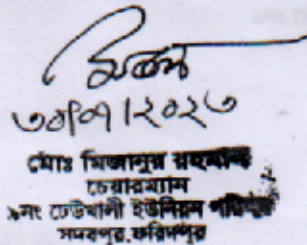 মিজান
৩০/০৭/২০২৩
মোঃ মিজানুর রহমান
চেয়ারম্যান
৯নং ঢেউখালী ইউনিয়ন পরিষদ
সদরপুর, ফরিদপুর